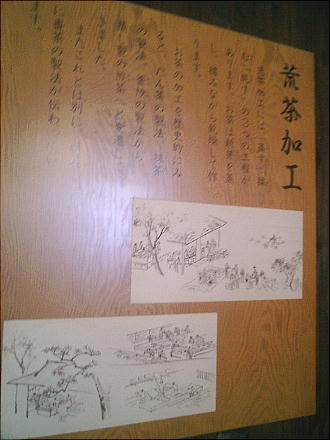 荒茶加工
荒茶加工には「蒸す」「揉
む」「乾す」の3つの工程が
あります。お茶は新芽を蒸
し、揉みながら乾燥して作
ります。
お茶の加工を歴史的にみ
ると、だん茶の製法、抹茶
の製法、釜炒の製法から
製の煎茶へと変
きました。
またこれとは別に
に番茶の製法が伝わ
ます。